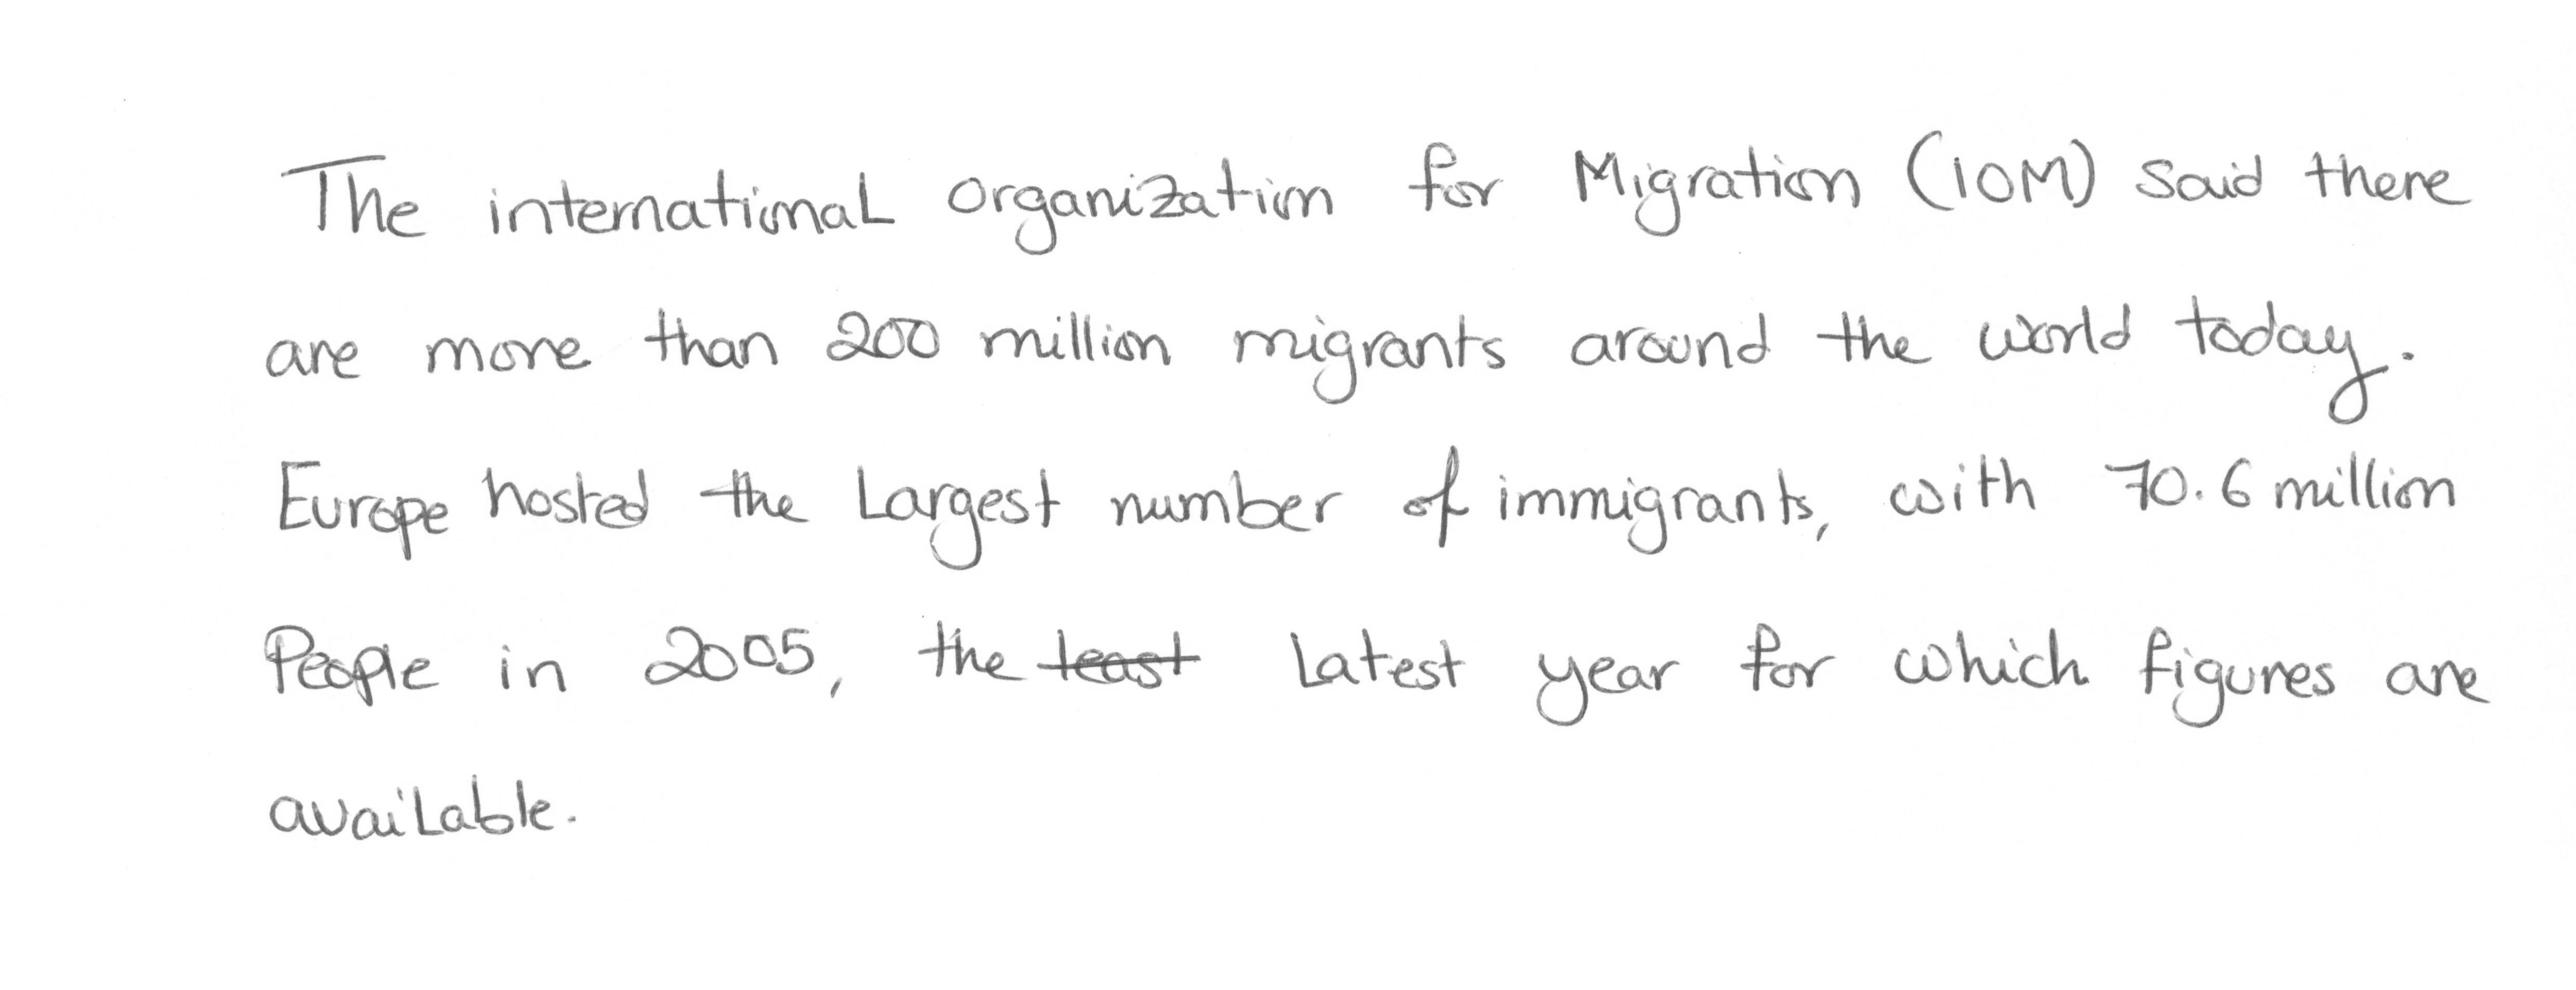 The international organization for Migration (IOM) said there
are more than 200 million migrants around the world today.
Europe hosted the Largest number of immigrants, with 70.6 million
People in 2005, the least Latest year for which figures are
available.